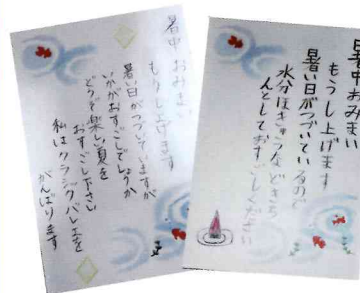 暑中おみまい
もうし上げます
暑い日がつづいていますが
いかがおすごしでしょうか
どうぞ楽しい夏を
おすごし下さい
私はクラシックバレエを
がんばります
暑中おみまい
もうし上げます
暑い日がつづいているので
水分ほきゅうなどきち
んとしておすごしください